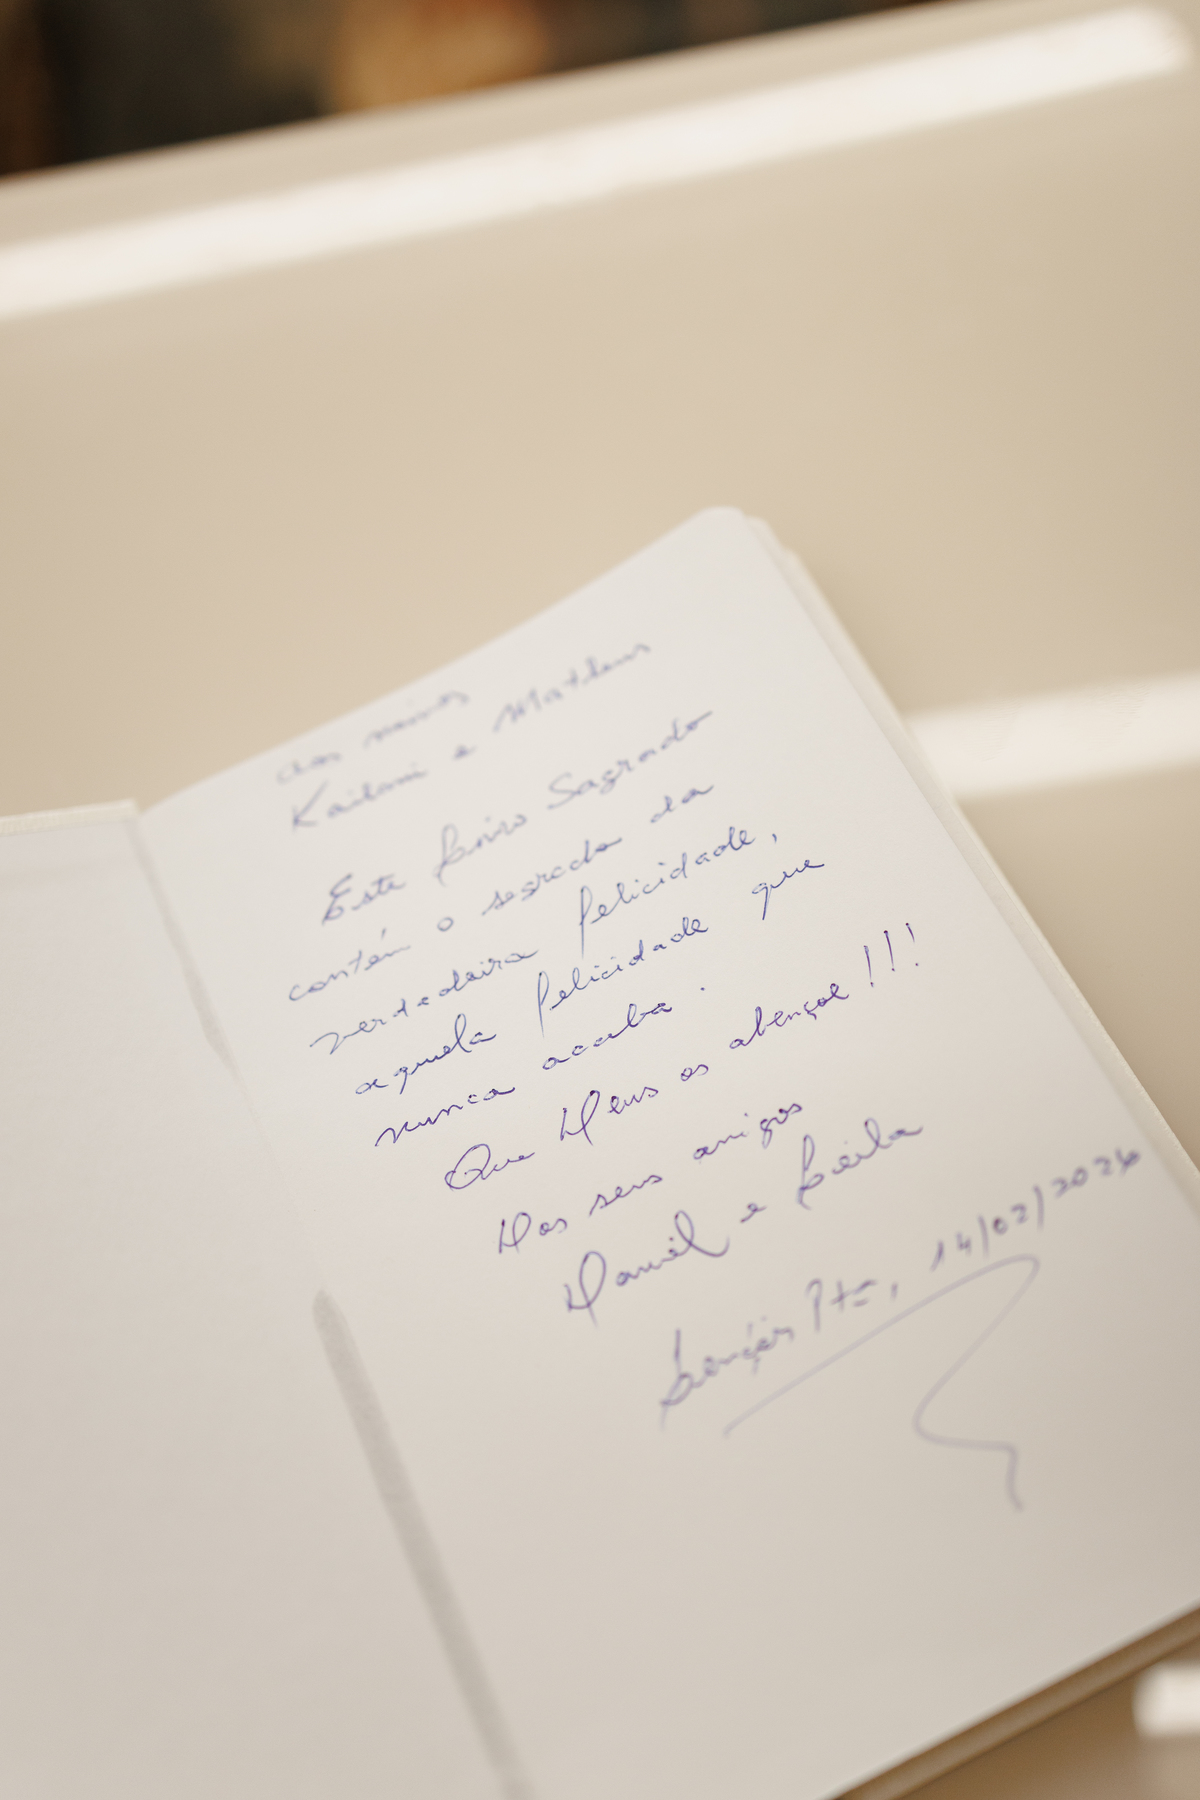 aos noivos
Kailani e Matheus
Este Livro Sagrado
contém o segredo da
verdadeira felicidade,
aquela felicidade que
nunca acaba.
Que Deus os abençoe!!!
Dos seus amigos
Daniel e Leila
Lençóis Pta, 14/02/2026